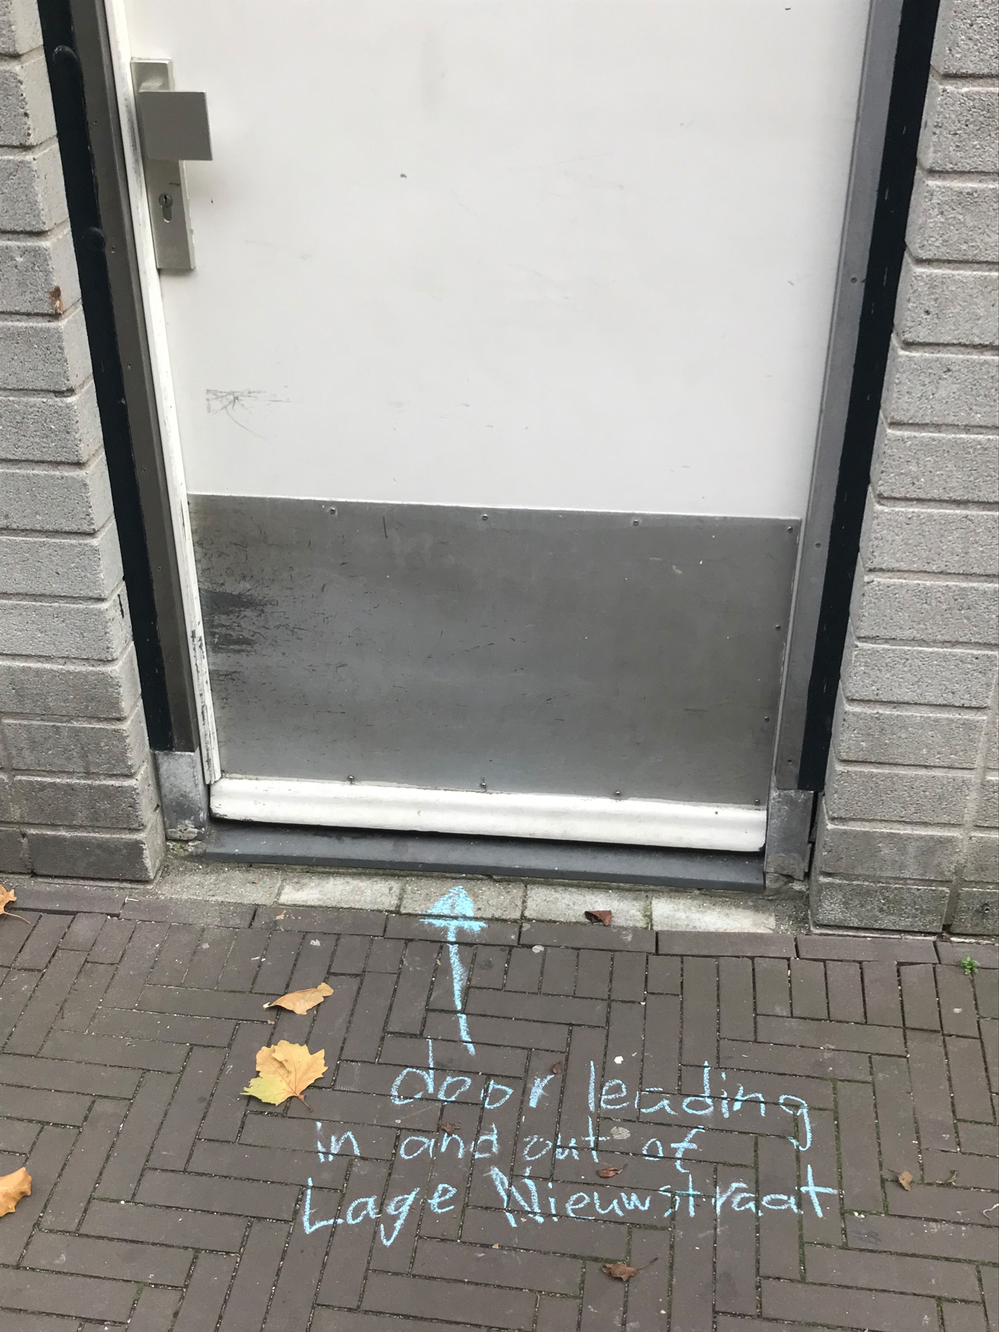 door leading
in and out of
Lage Nieuwstraat